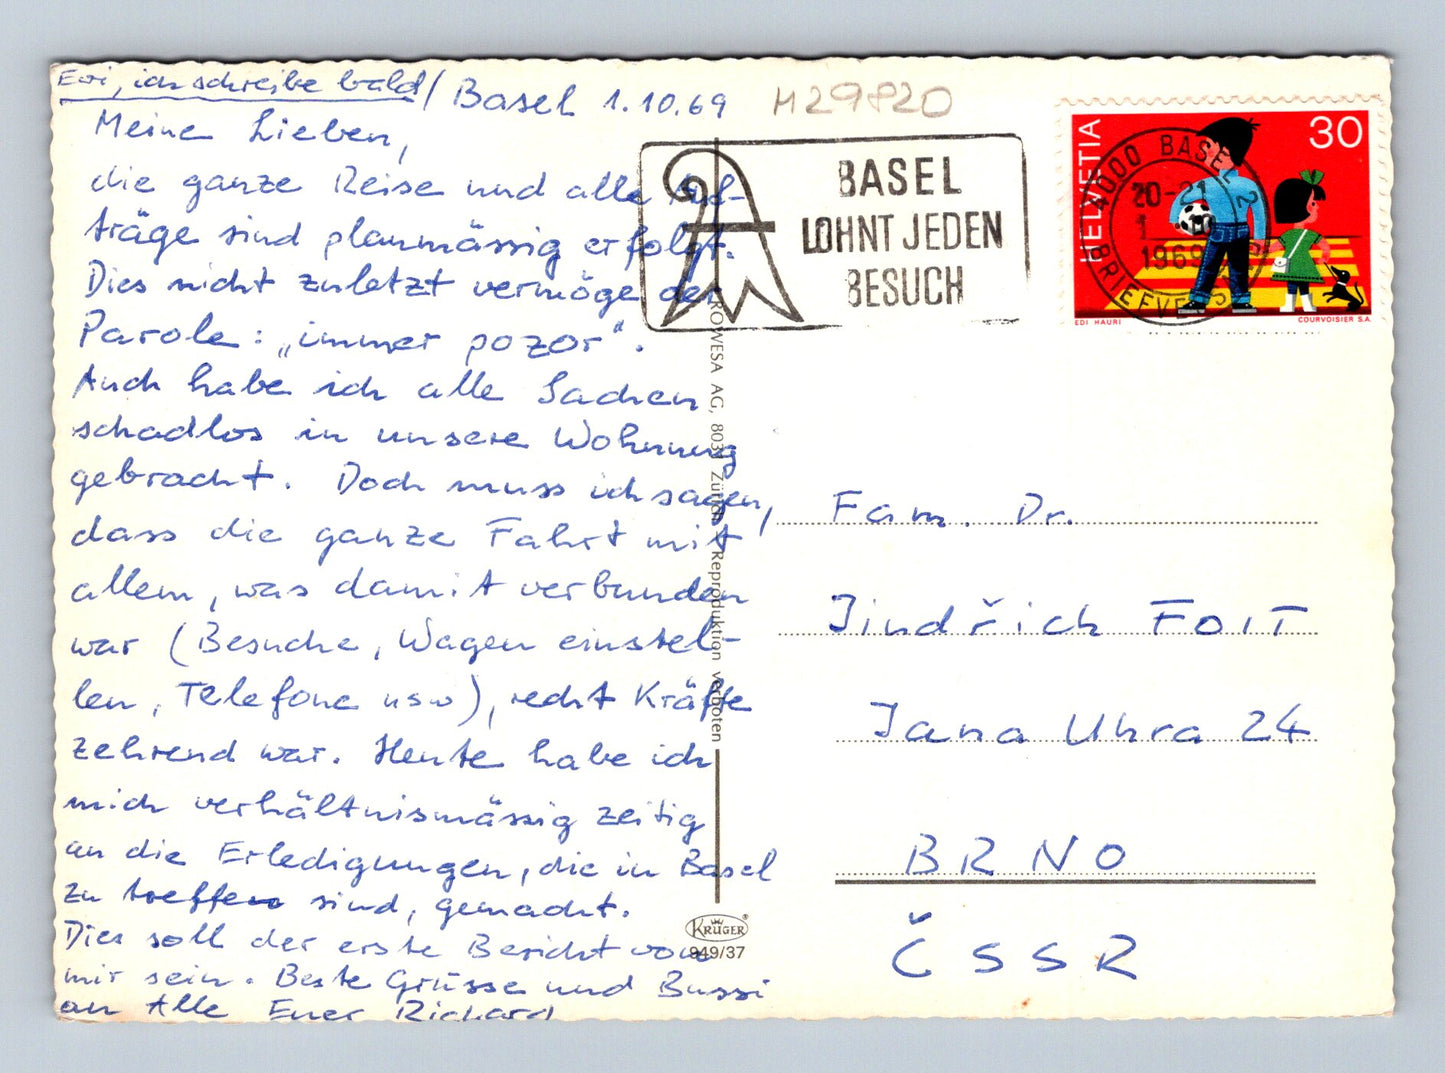 Evi, ich schreibe bald / Basel 1.10.69
M29820
Meine Lieben,
die ganze Reise und alle Auf-
träge sind planmässig erfolgt.
Dies nicht zuletzt vermöge der
Parole: „immer pozor".
Auch habe ich alle Sachen
schadlos in unsere Wohnung
gebracht. Doch muss ich sagen,
dass die ganze Fahrt mit
allem, was damit verbunden
war (Besuche, Wagen einstel-
len, Telefone usw), recht Kräfte
zehrend war. Heute habe ich
mich verhältnismässig zeitig
an die Erledigungen, die in Basel
zu treffen sind, gemacht.
Dies soll der erste Bericht von
mir sein. Beste Grüsse und Bussi
an Alle Euer Richard
BASEL
LOHNT JEDEN
BESUCH
HELVETIA
30
EDI HAURI
COURVOISIER S.A.
4000 BASEL 2
20-21
1969
BRIEFVERSAND
ROWESA AG, Zürich Reproduktion verboten
KRÜGER®
949/37
Fam. Dr.
Jindřich FOIT
Jana Uhra 24
BRNO
ČSSR